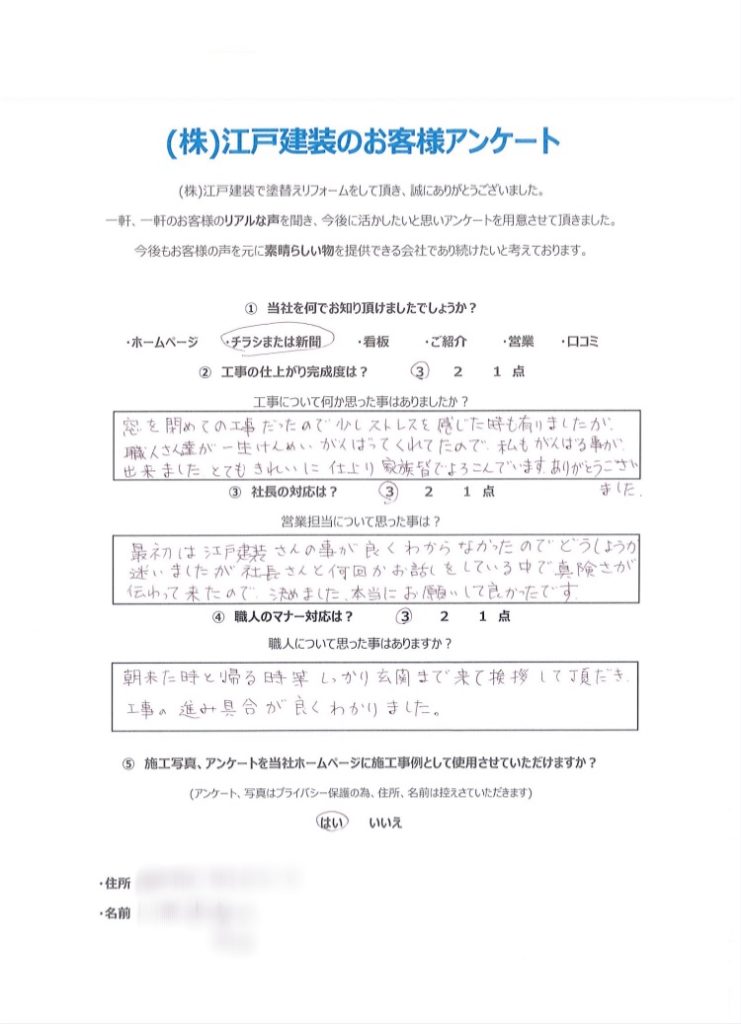 (株)江戸建装のお客様アンケート
(株)江戸建装で塗替えリフォームをして頂き、誠にありがとうございました。
一軒、一軒のお客様のリアルな声を聞き、今後に活かしたいと思いアンケートを用意させて頂きました。
今後もお客様の声を元に素晴らしい物を提供できる会社であり続けたいと考えております。
① 当社を何でお知り頂けましたでしょうか？
・ホームページ ・チラシまたは新聞 ・看板 ・ご紹介 ・営業 ・口コミ
② 工事の仕上がり完成度は？ 3 2 1 点
工事について何か思った事はありましたか？
窓を閉めての工事だったので少しストレスを感じた時も有りましたが、
職人さん達が一生けんめいがんばってくれてたので、私もがんばる事が
出来ました とてもきれいに仕上り家族皆でよろこんでいます。ありがとうござい
ました。
③ 社長の対応は？ 3 2 1 点
営業担当について思った事は？
最初は江戸建装さんの事が良くわからなかったのでどうしようか
迷いましたが社長さんと何回かお話しをしている中で真険さが
伝わって来たので、決めました。本当にお願いして良かったです。
④ 職人のマナー対応は？ 3 2 1 点
職人について思った事はありますか？
朝来た時と帰る時 しっかり玄関まで来て挨拶して頂だき、
工事の進み具合が良くわかりました。
⑤ 施工写真、アンケートを当社ホームページに施工事例として使用させていただけますか？
(アンケート、写真はプライバシー保護の為、住所、名前は控えさていただきます)
はい いいえ
・住所
・名前